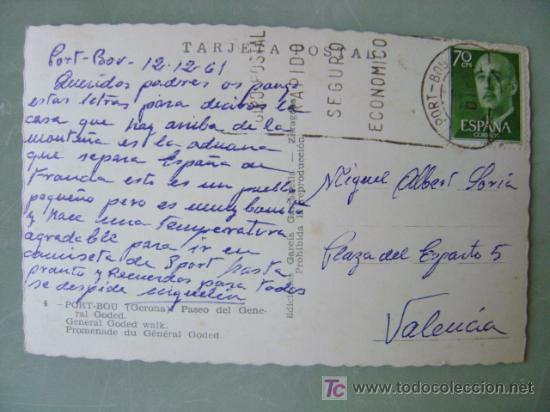 TARJETA POSTAL
Port-Bou - 12-12-61
Queridos padres os pongo
estas letras para deciros la
casa que hay arriba de la
monteña es la aduana
que separa España de
Francia este es un pueblo
pequeño pero es muy bonito
y hace una temperatura
agradable para ir en
camiseta de Sport hasta
pronto y Recuerdos para todos
se despide
4 - PORT-BOU (Gerona) Paseo del Gene-
ral Goded.
General Goded walk.
Promenade du Général Goded.
Ediciones García Garrabella — Zaragoza
Prohibida la reproducción
GIRO POSTAL
RAPIDO
SEGURO
ECONOMICO
PORT-BOU
70 CTS
ESPAÑA
CORREOS
Miguel Albert Soria
Plaza del Esparto 5
Valencia
TC www.todocoleccion.net